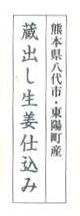 熊本県八代市・東陽町産
蔵出し生姜仕込み